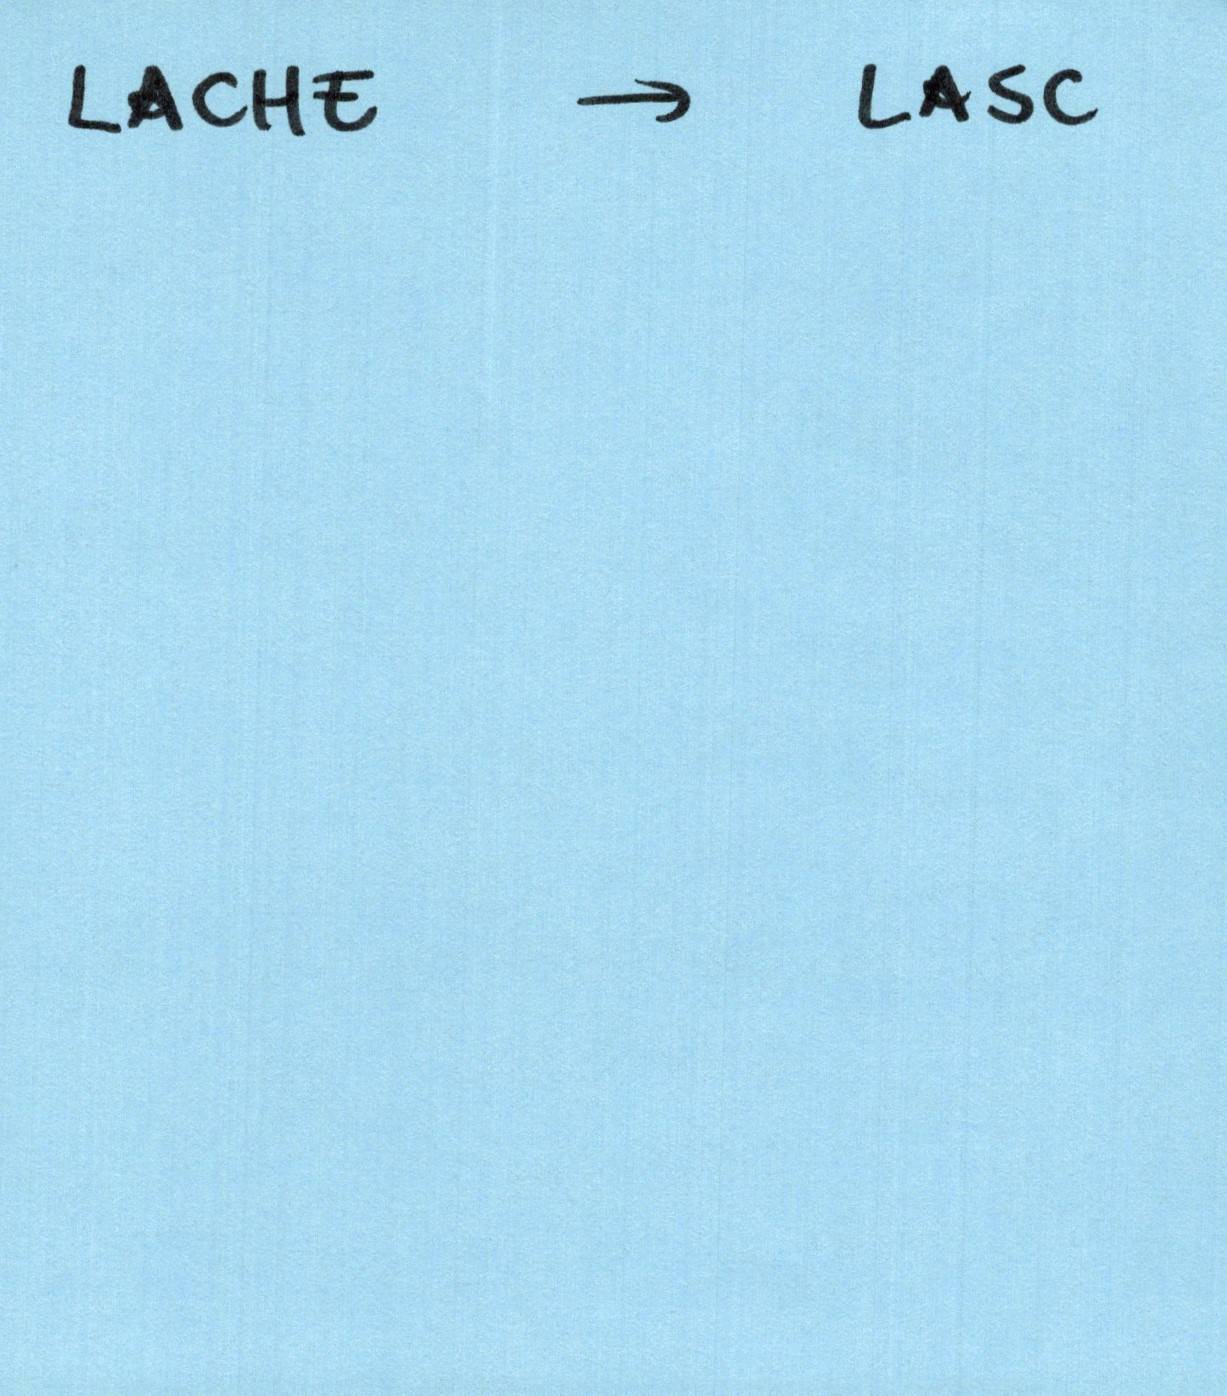 LACHE → LASC